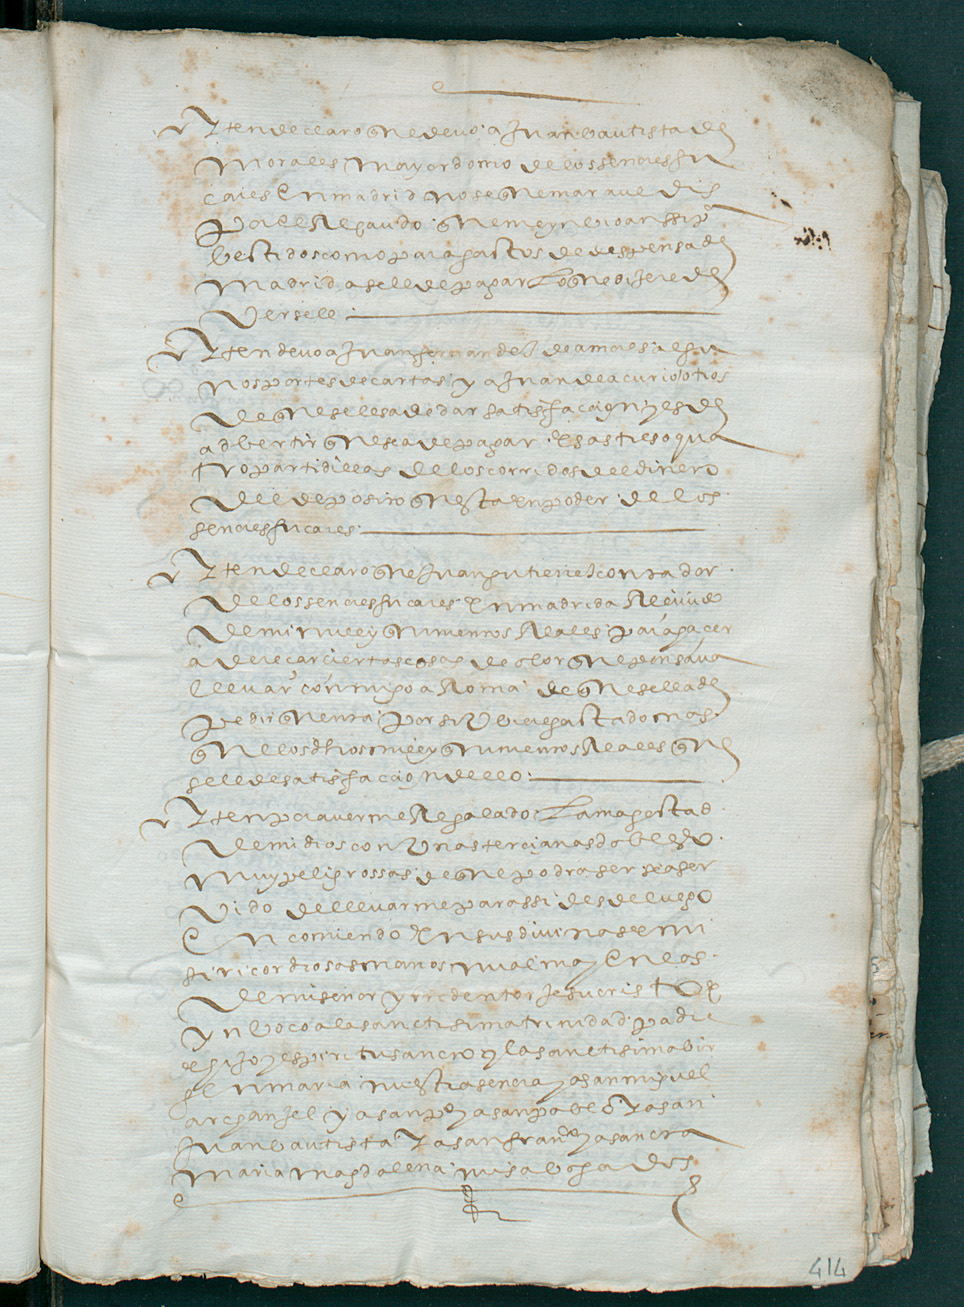 Yten declaro que devo a Juan bautista de
Morales mayordomo de los señores fu
cares En madrid no se que maravedis
por el Recaudo que me ynbio anssi pa
bestidos como para gastos de despensa de
Madrid asele de pagar Lo que dijere de
Versele
Yten devo a Juan fernandez de amaes algu
nos portes de cartas y a Juan de acurio otros
de que se les a de dar satisfacion y es de
advertir que se a de pagar Esas tres o qua
tro partidillas de los corridos del dinero
del deposito que esta En poder de los
señores fucares
Yten declaro que Juan gutierrez contador
de los señores fucares En madrid a Recivido
de mi mill y quinientos Reales para hacer
aderecar ciertas cosas de olor que pensava
llevar conmigo a Roma de que se le a de
pedir quenta por si Vbiere gastado mas
que los dhos mill y quinientos Reales que
se le de satisfacion dello
Yten por averme Regalado La magestad
de mi dios con Vnas tercianas dobles
muy peligrossas de que podra ser sea ser
vido de llevarme para ssi desde luego
Encomiendo En sus divinas E mi
siricordiosas manos mi alma y En las
de mi señor y rredentor Jesucristo E
ynboco a la sanctisima trinidad padre
e hijo y espiritu sancto y la sanctisima bir
gen maria nuestra señora y a san miguel
archanjel y a san po y a san pablo Y a san
Juan bautista Y a san franco y a sancta
maria magdalena mis abogados
414